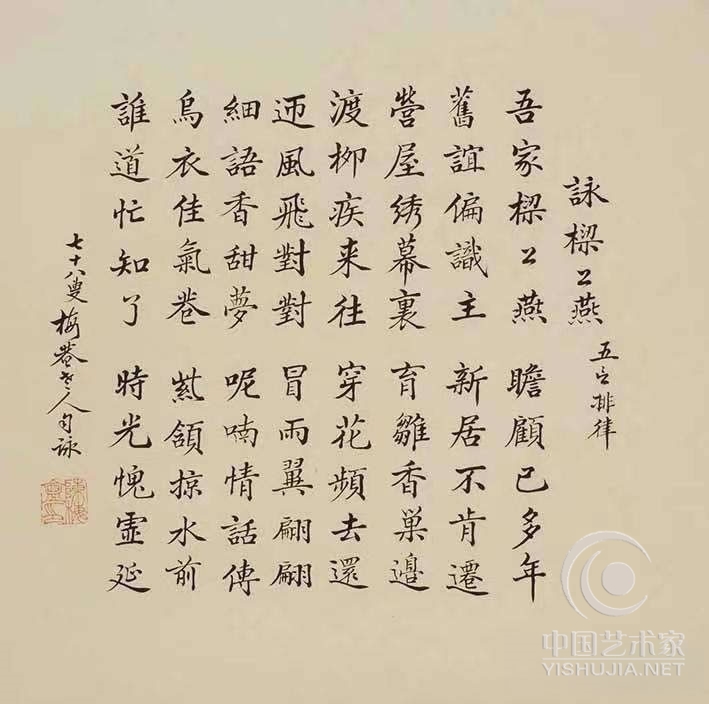 詠樑上燕 五言排律
吾家樑上燕 瞻顧已多年
舊誼偏識主 新居不肯遷
營屋綉幕裏 育雛香巢邊
渡柳疾来往 穿花頻去還
迎風飛對對 冒雨翼翩翩
細語香甜夢 呢喃情話傳
烏衣佳氣巷 紫頷掠水前
誰道忙知了 時光愧虛延
七十八叟 梅菴老人自詠
中国艺术家
YISHUJIA.NET